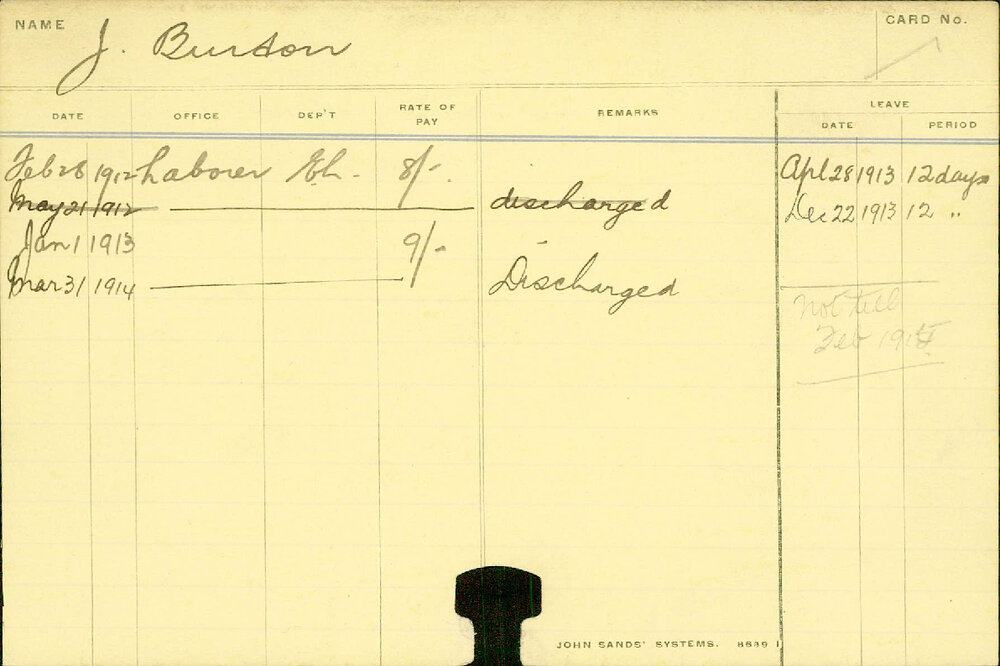 NAME J. Burdon CARD No.
DATE OFFICE DEP'T RATE OF PAY REMARKS LEAVE
DATE PERIOD
Feb 28 1912 Laborer 8/-. Apl 28 1913 12 days
May 21 1912 discharged Dec 22 1913 12 "
Jan 1 1913 9/-
Mar 31 1914 Discharged
Not till
Feb
JOHN SANDS' SYSTEMS.